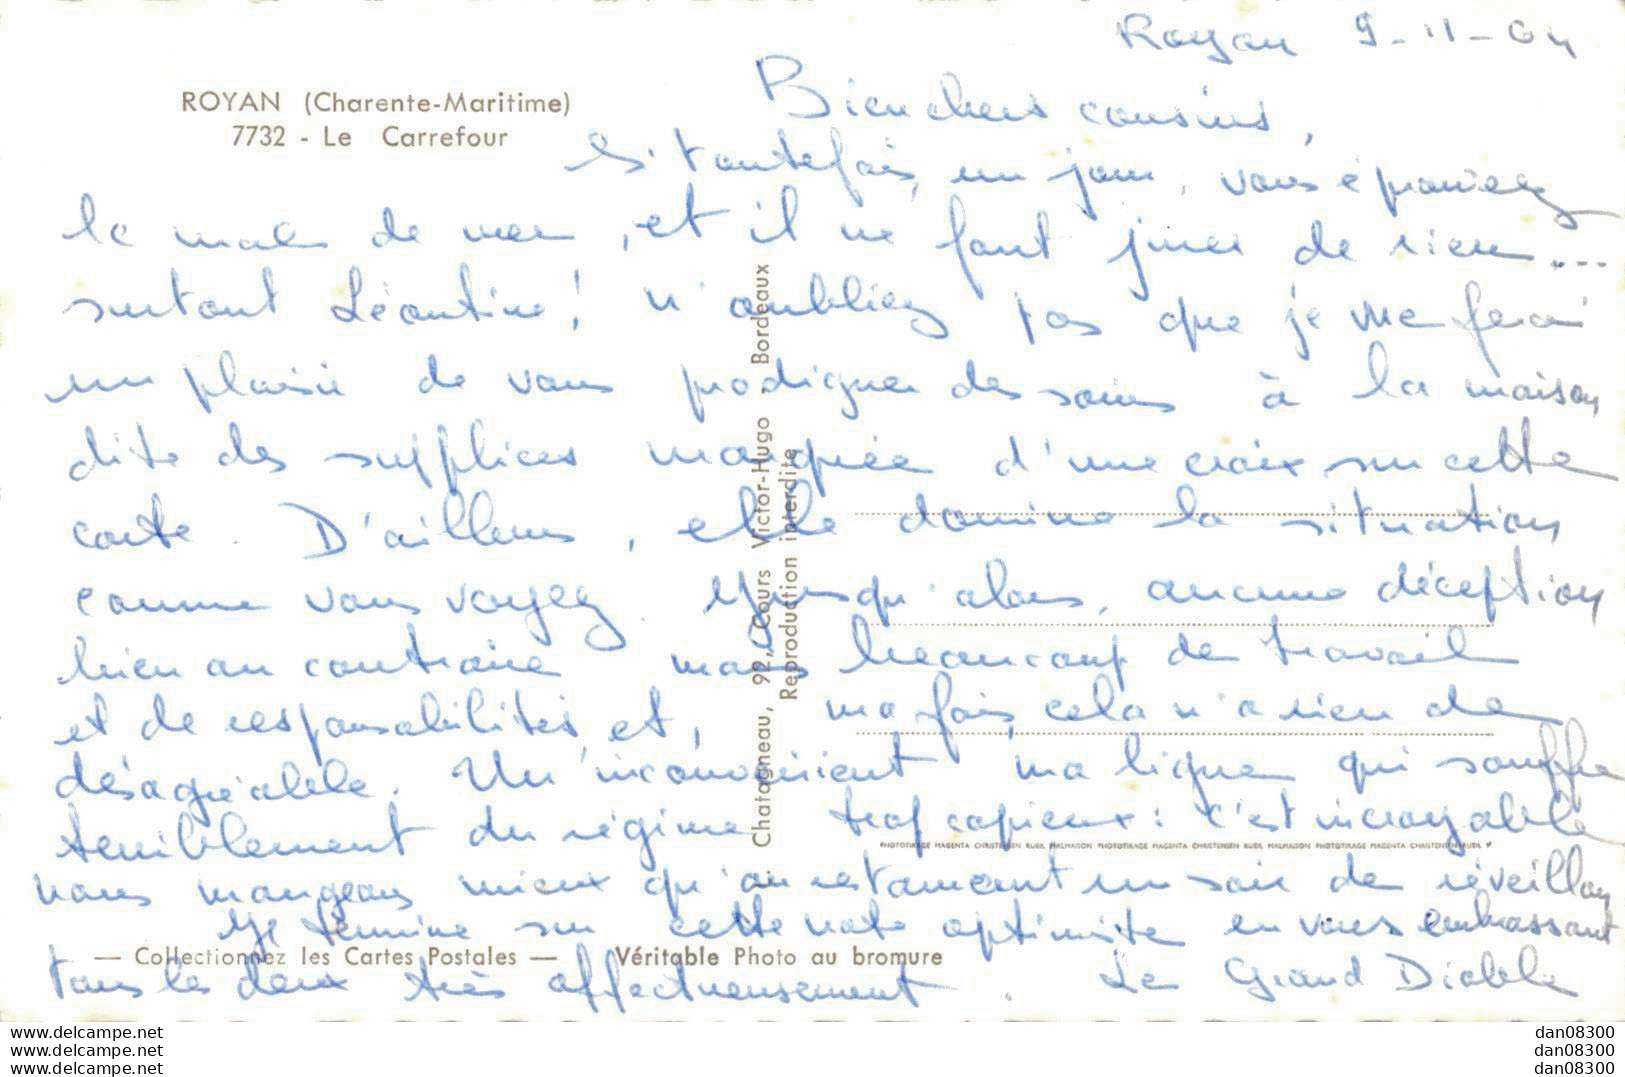 Royan 9-11-64
ROYAN (Charente-Maritime)
7732 - Le Carrefour
Bien chers cousins,
Si toutefois, un jour, vous éprouviez
le mal de mer, et il ne faut jurer de rien...
surtout Léontine! n'oubliez pas que je me ferai
un plaisir de vous prodiguer des soins à la maison
dite des supplices marquée d'une croix sur cette
carte. D'ailleurs, elle domine la situation
comme vous voyez. Jusqu'alors, aucune déception
bien au contraire mais beaucoup de travail
et de responsabilités et, ma fois, cela n'a rien de
désagréable. Un inconvénient ma ligne qui souffre
terriblement du régime trop copieux : c'est incroyable
nous mangeons mieux qu'au restaurant un soir de réveillon
Je termine sur cette note optimiste en vous embrassant
tous les deux très affectueusement. Le Grand Diable
Chatagneau, 92, Cours Victor-Hugo - Bordeaux
Reproduction interdite
PHOTOTIRAGE MAGENTA CHRISTENSEN RUEIL MALMAISON PHOTOTIRAGE MAGENTA CHRISTENSEN RUEIL MALMAISON PHOTOTIRAGE MAGENTA CHRISTENSEN RUEIL
— Collectionnez les Cartes Postales — Véritable Photo au bromure
www.delcampe.net dan08300
www.delcampe.net dan08300
www.delcampe.net dan08300